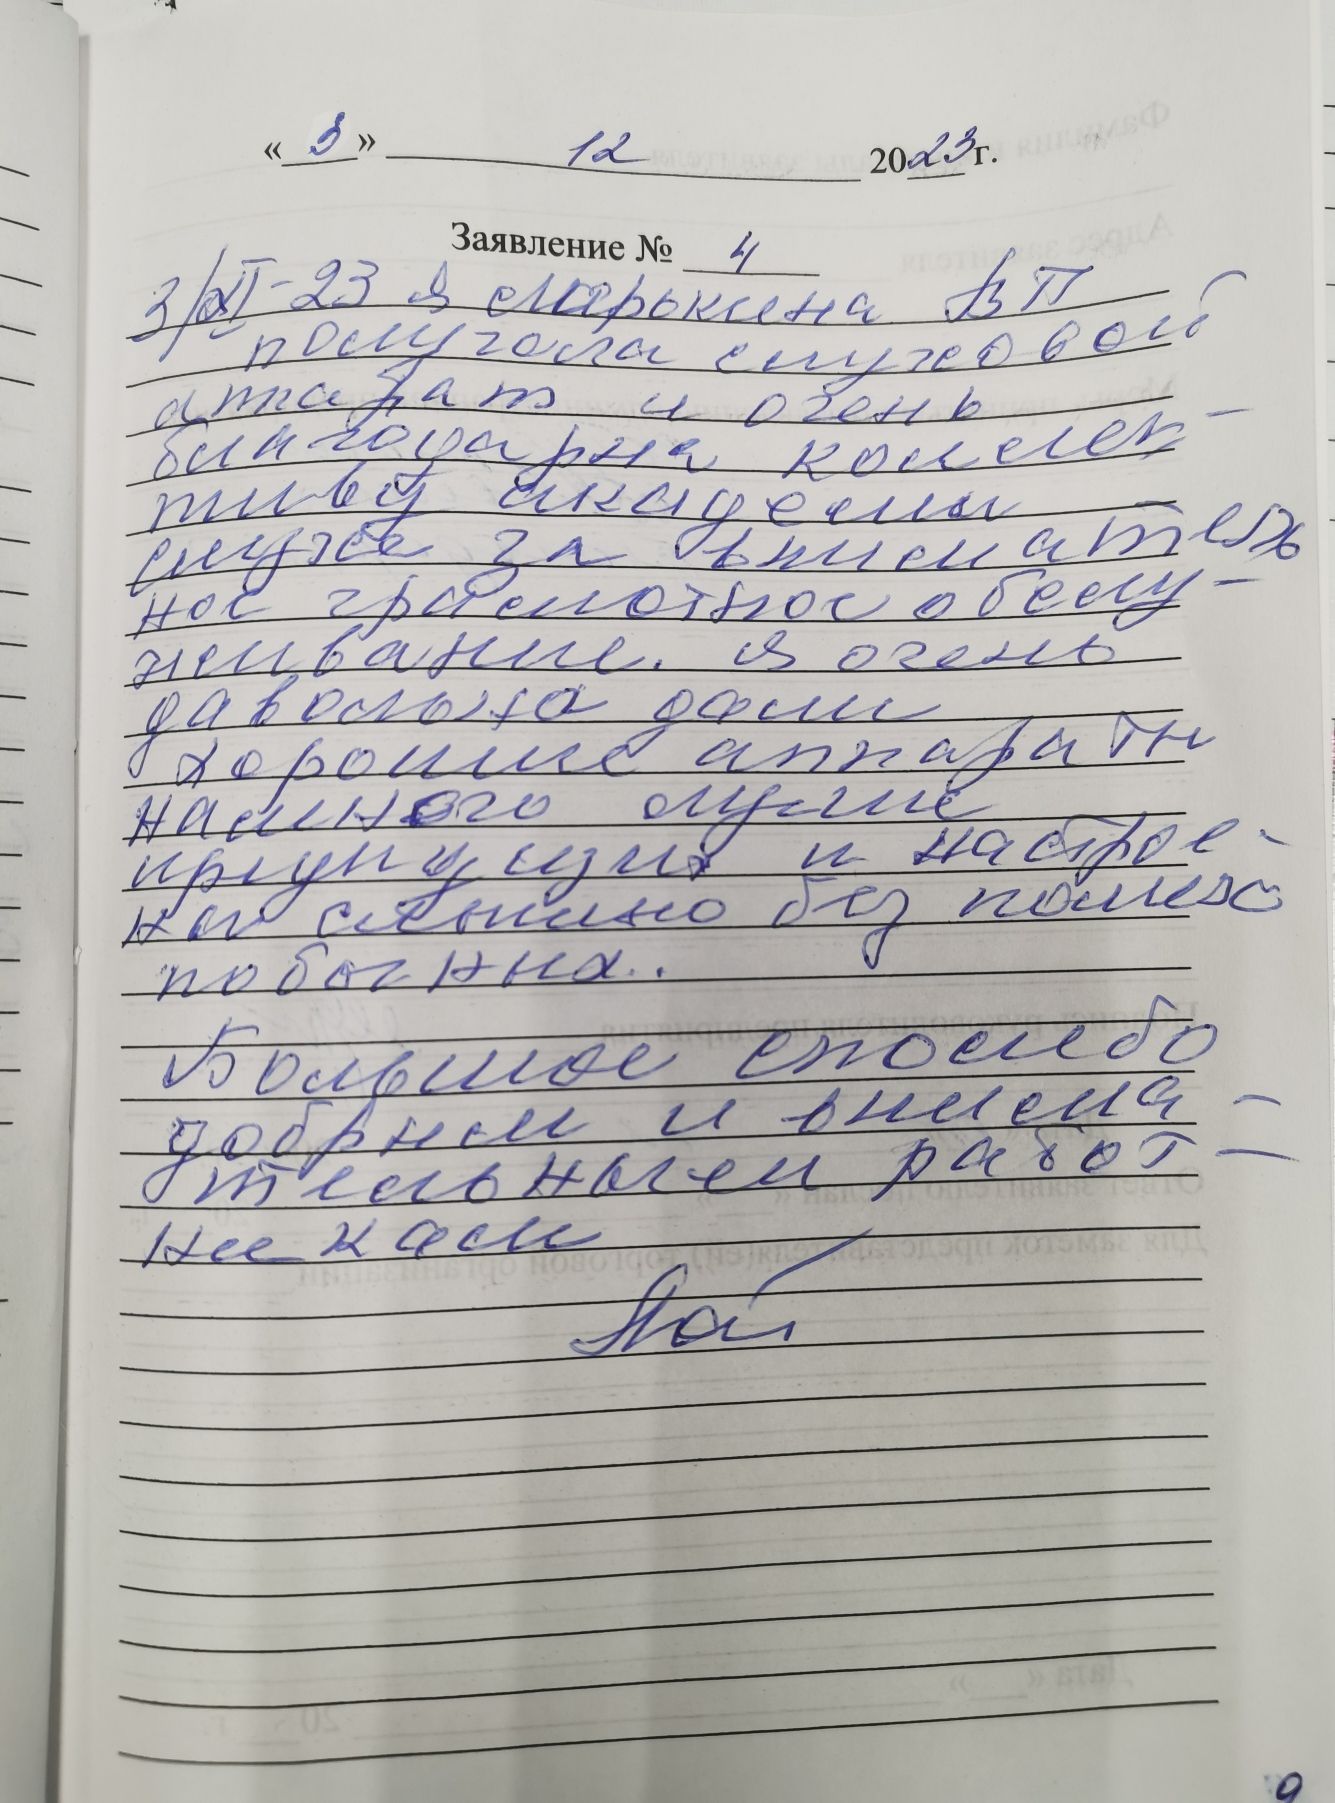 « 3 » 12 2023 г.
Заявление № 4
3/XII-23 Я Марькина В П
получала слуховой
аппарат и очень
благодарна коллек-
тиву академии
слуха за вниматель
ное грамотное обслу-
живание. Я очень
давольна дали
хорошие аппараты
намного лучше
предыдущих и настрое-
на слышно без помех
побочных..
Большое спасибо
добрым и внима-
тельным работ-
никам
9